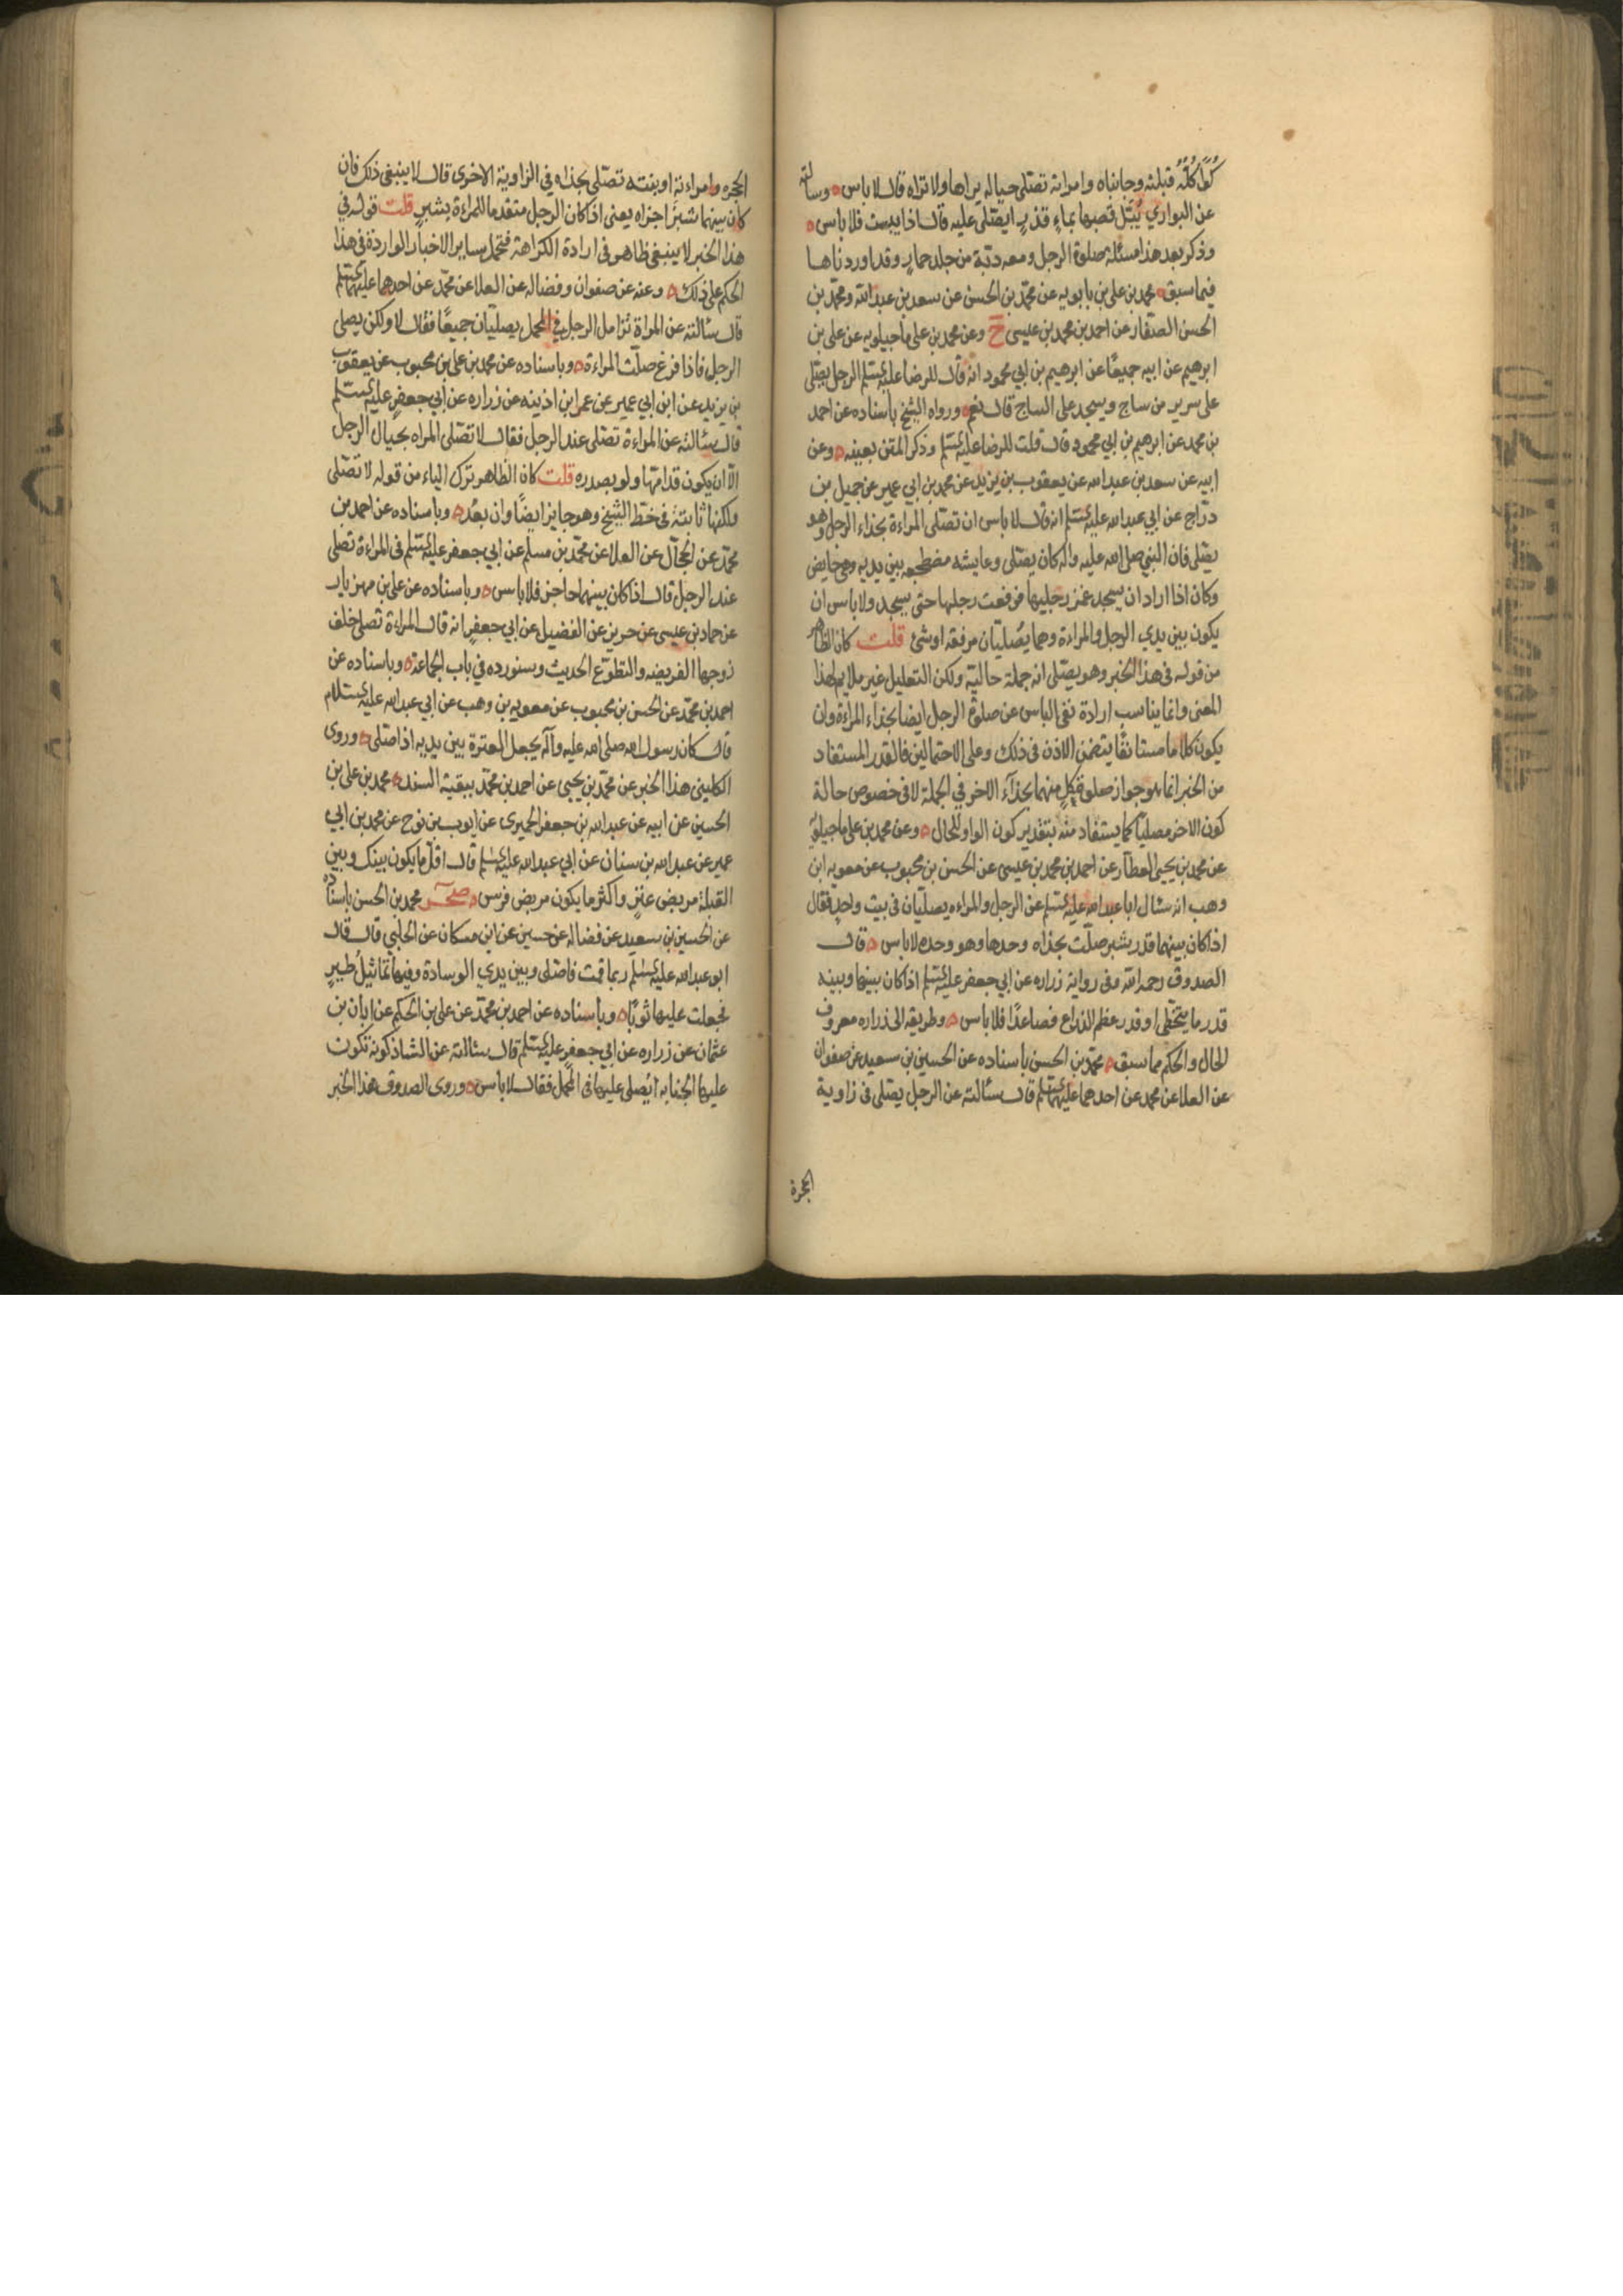 كُوًا كُلُّهُ قبلته وجانباه وامراته تصلى حياله يراها ولا تراه قال لا باس ۝ وسالته
عن البواري يُبَل قصبها بماءٍ قذرٍ ايصلى عليه قال اذا يبست فلا باس ۝
وذكر بعد هذا مسئلة صلوة الرجل ومعه دبّة من جلد حمارٍ وقد اوردناها
فيما سبق ۝ محمد بن علي بن بابويه عن محمّد بن الحسن عن سعد بن عبد الله ومحمّد بن
الحسن الصفار عن احمد بن محمد بن عيسى ح وعن محمد بن علي ماجيلويه عن علي بن
ابرهيم عن ابيه جميعًا عن ابرهيم بن ابي محمود انه قال للرضا عليه السّلم الرجل يصلى
على سرير من ساج ويسجد على الساج قال نعم ۝ ورواه الشيخ باسناده عن احمد
بن محمد عن ابرهيم بن ابي محمود قال قلت للرضا عليه السّلم وذكر المتن بعينه ۝ وعن
ابيه عن سعد بن عبد الله عن يعقوب بن يزيد عن محمد بن ابي عمير عن جميل بن
درّاج عن ابي عبد الله عليه السّلم انه قال لا باس ان تصلى المراءة بحذاء الرجل وهو
يصلى فان النبي صلى الله عليه واله كان يصلى وعايشه مضطجعه بين يديه وهي حايض
وكان اذا اراد ان يسجد غمز رجليها فرفعت رجلها حتى يسجد ولا باس ان
يكون بين يدي الرجل والمراءة وهما يصُلّيان مرفقه اوشئ قلت كان الظاهر
من قوله في هذا الخبر وهو يصلى انه جملة حالية ولكن التعليل غير ملايم لهذا
المعنى وانما يناسب ارادة نفى الباس عن صلوة الرجل ايضا بحذاء المراءة وان
يكون كلاما مستانفًا يتضمن الاذن في ذلك وعلى الاحتمالين فالقدر المستفاد
من الخبر انما هو جواز صلوة كلٍ منهما بحذآء الاخر في الجملة لا في خصوص حالة
كون الاخر مصليًا كما يستفاد منه بتقدير كون الواو للحال ۝ وعن محمد بن علي ماجيلويه
عن محمد بن يحيى العطار عن احمد بن محمد بن عيسى عن الحسن بن محبوب عن معويه ابن
وهب انه سئال ابا عبد الله عليه السّلم عن الرجل والمراءه يصلّيان في بيت واحدٍ فقال
اذا كان بينهما قدر شبر صلّت بحذاه وحدها وهو وحده لا باس ۝ قال
الصدوق رحمه الله وفى رواية زراره عن ابي جعفر عليه السّلم اذا كان بينها وبينه
قدر ما يتخطى او قدر عظم الذراع فصاعدًا فلا باس ۝ وطريقه الى زراره معروف
الحال والحكم مما سبق ۝ محمّد بن الحسن باسناده عن الحسين بن سعيد عن صفوان
عن العلا عن محمد عن احدهما عليهما السّلم قال سئالته عن الرجل يصلى في زاوية
الحجرة
الحجره وامراءته او بنته تصلّى بحذاه في الزاوية الاخرى قال لا ينبغى ذلك فان
كان بينهما شبرًا اجزاه يعنى اذا كان الرجل متقدما للمراءة بشبرٍ قلت قوله في
هذا الخبر لا ينبغى ظاهر فى ارادة الكراهة فتحمل ساير الاخبار الواردة في هذا
الحكم على ذلك ۝ وعنه عن صفوان وفضاله عن العلا عن محمّد عن احدهما عليهما السّلم
قال سئالته عن المراة تُزامل الرجل في المحمل يصليان جميعًا فقال لا ولكن يصلى
الرجل فاذا فرغ صلّت المراءة ۝ وباسناده عن محمد بن علي بن محبوب عن يعقوب
بن يزيد عن ابن ابي عمير عن عمر ابن اذينه عن زراره عن أبي جعفرٍ عليه السّلم
قال سئالته عن المراءة تصلى عند الرجل فقال لا تصّلى المراه بحيال الرجل
الا ان يكون قدامّها ولو بصدره قلت كان الظاهر ترك الياء من قوله لا تصّلى
ولكنها ثابتة في خط الشيخ وهو جايز ايضًا وان بعُد ۝ وباسناده عن احمد بن
محمّد عن الحجّال عن العلا عن محمّد بن مسلم عن ابي جعفر عليه السّلم فى المراءة تصلى
عند الرجل قال اذا كان بينهما حاجز فلا باس ۝ وباسناده عن علي بن مهزيار
عن حماد بن عيسى عن حريز عن الفضيل عن ابي جعفرٍ انه قال المراءة تصلى خلف
زوجها الفريضه والتطوّع الحديث وسنورده في باب الجماعة ۝ وباسناده عن
احمد بن محمّد عن الحسن بن محبوب عن معويه بن وهب عن ابي عبد الله عليه السّلام
قال كان رسول الله صلى الله عليه وآله يجعل العنزة بين يديه اذا صلى ۝ وروى
الكلينى هذا الخبر عن محمّد بن يحيى عن احمد بن محمّد ببقية السند ۝ محمد بن علي بن
الحسين عن ابيه عن عبد الله بن جعفر الحميرى عن ايوب بن نوح عن محمد بن ابي
عمير عن عبد الله بن سنان عن ابي عبد الله عليه السّلم قال اقلّ ما يكون بينك وبين
القبلة مربض عنزٍ واكثر ما يكون مربض فرس ۝ صحر محمد بن الحسن باسناده
عن الحسين بن سعيد عن فضاله عن حسين عن ابن مسكان عن الحلبي قال قال
ابو عبد الله عليه السّلم ربما قمت فاصلى وبين يدي الوسادة وفيها تماثيلُ طيرٍ
فجعلت عليها ثوبًا ۝ وباسناده عن احمد بن محمّد عن علي بن الحكم عن ابان بن
عثمان عن زراره عن ابي جعفرٍ عليه السّلم قال سئالته عن الشاذكونه تكون
عليها الجنابه ايُصلى عليها فى المحمل فقال لا باس ۝ وروى الصدوق هذا الخبر